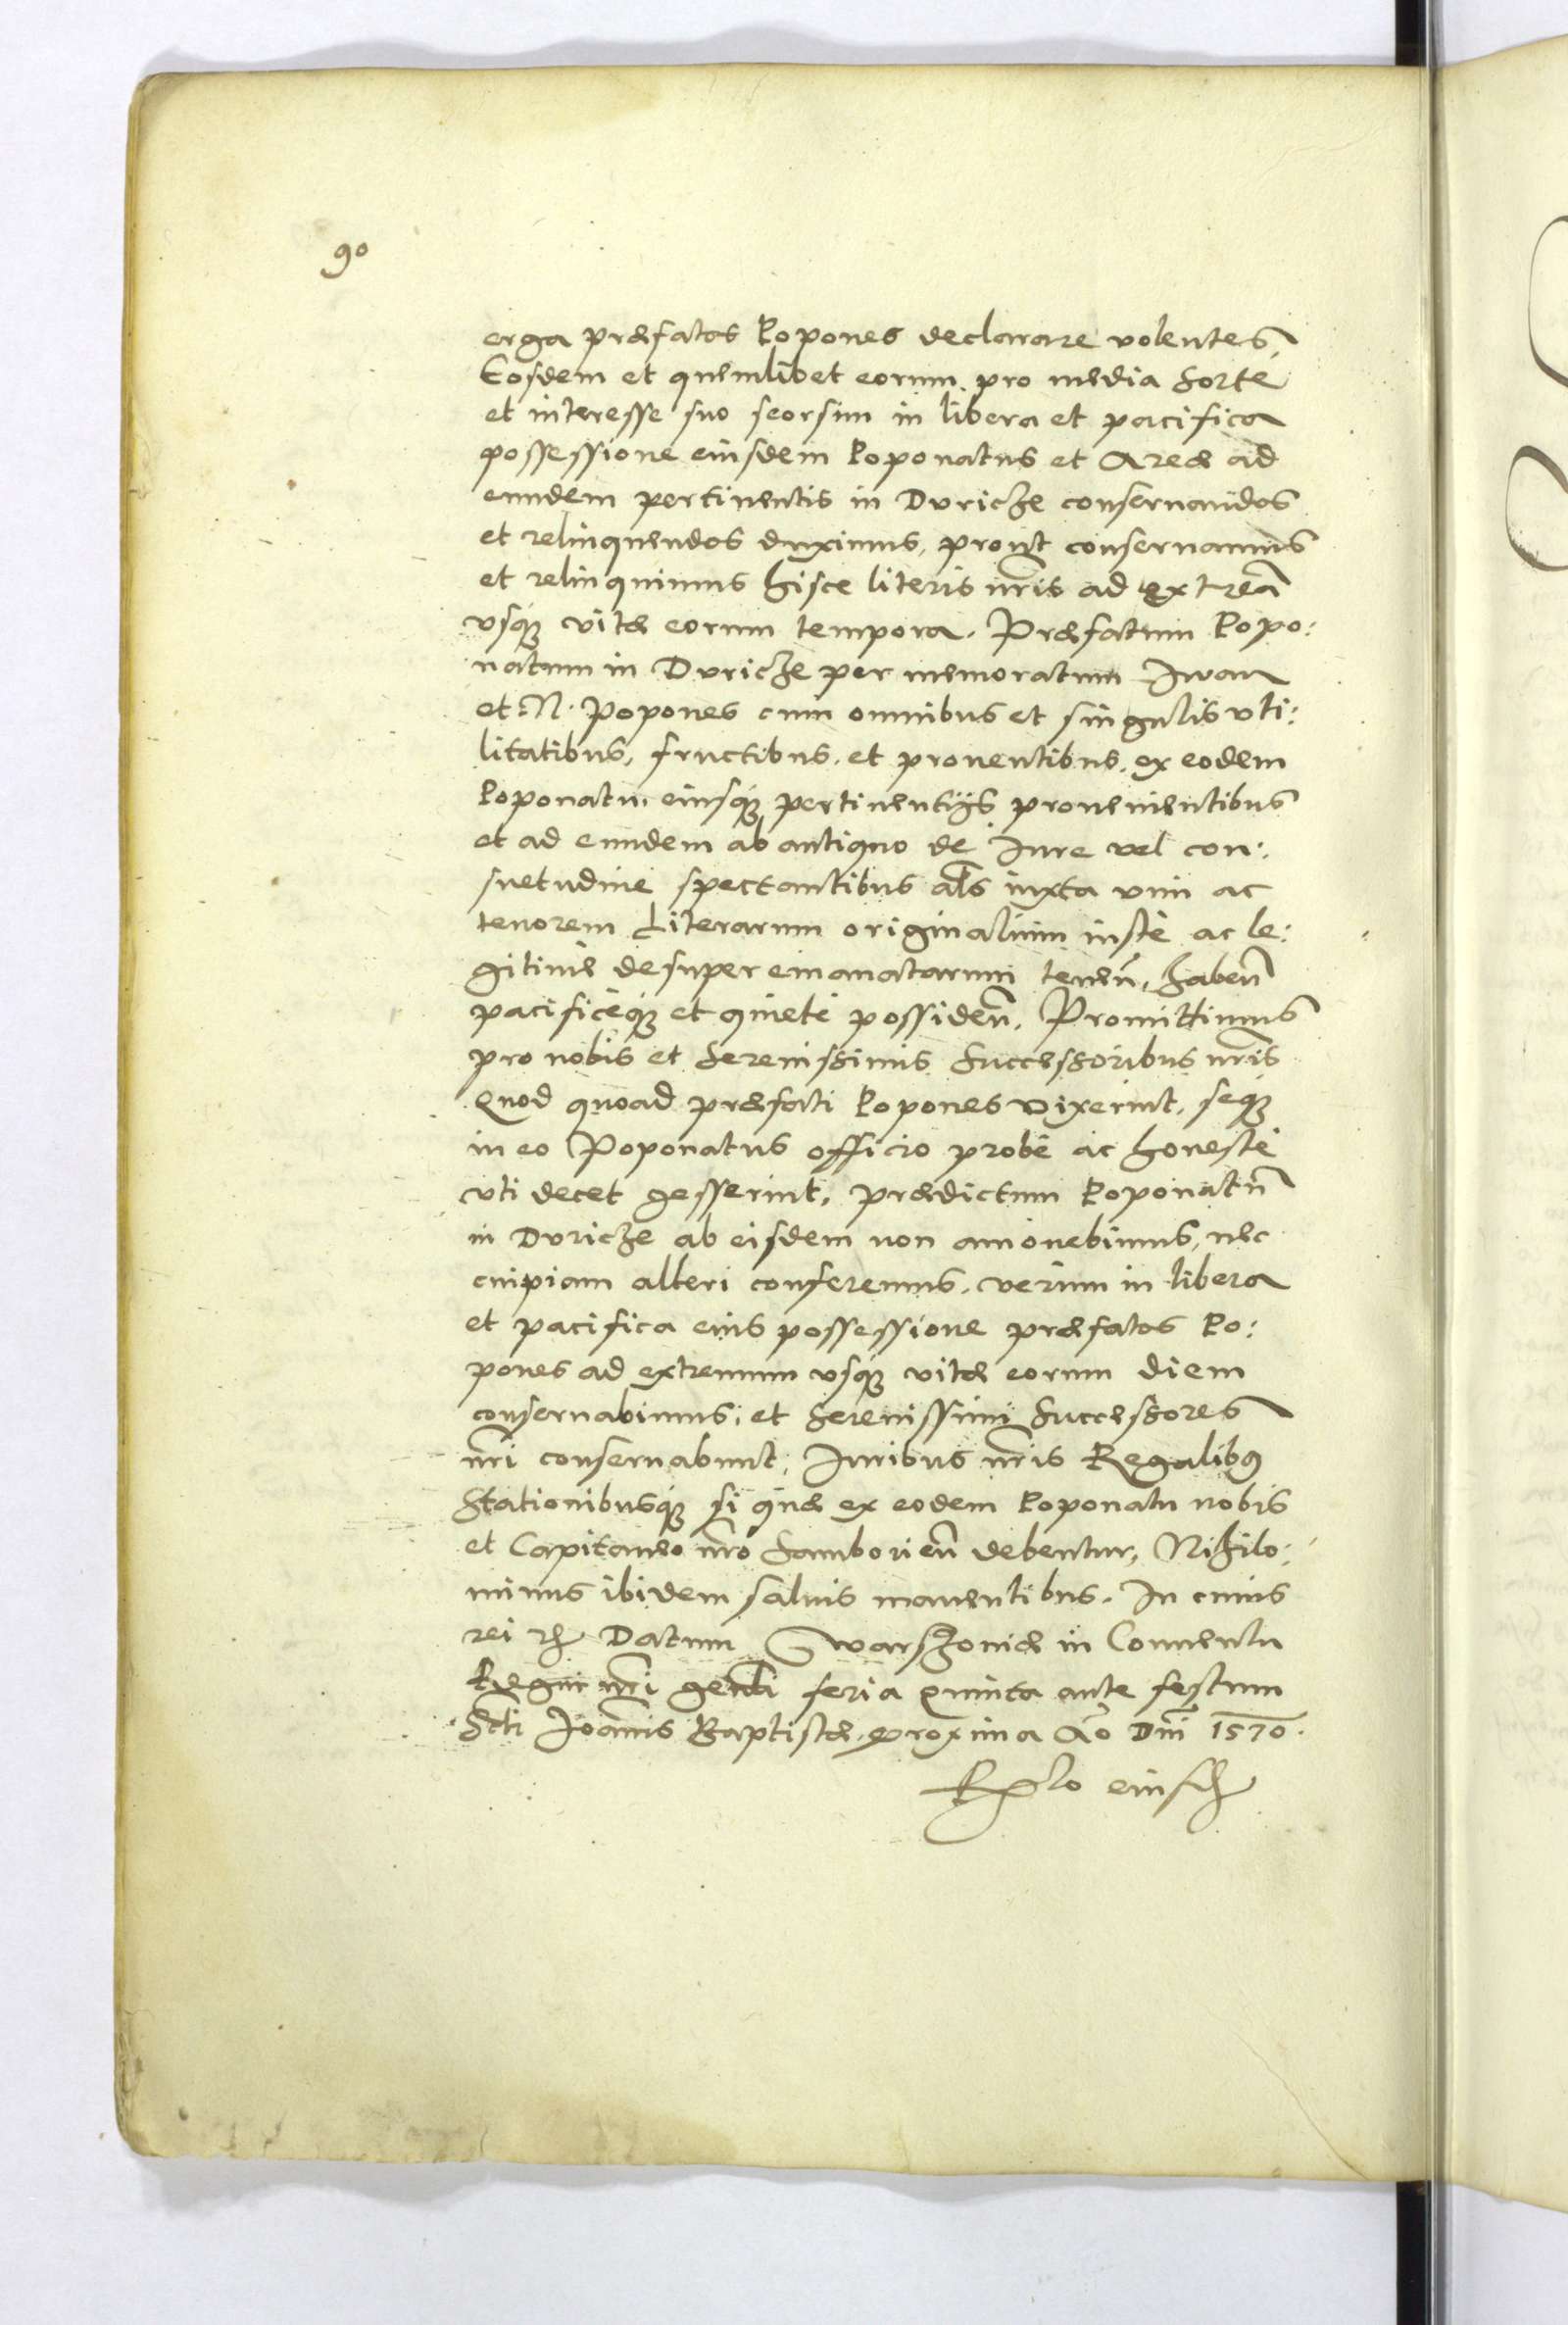 90
erga præfatos Popones declarare volentes,
Eosdem et quemlibet eorum pro media sorte
et interesse suo seorsim in libera et pacifica
possessione eiusdem Poponatus et Areæ ad
eundem pertinentis in Duricze conseruandos
et relinquendos duximus, prout conseruamus
et relinquimus hisce literis nr̃is ad extrea᷉
vsq₃ vitæ eorum tempora. Præfatum Popo:
natum in Duricze per memoratum Iwan
et N. Popones cum omnibus et singulis vti:
litatibus, fructibus, et prouentibus, ex eodem
Poponatu, eiusq₃ pertinentijs prouenientibus
et ad eundem ab antiquo de Iure vel con:
suetudine spectantibus als̃ iuxta vim ac
tenorem Literarum originalium iustè ac le:
gitimè desuper emanatarum teneñ, habeñ
pacificeq₃ et quietè possideñ. Promittimus
pro nobis et Serenissimis Successoribus nr̃is
Quod quoad præfati Popones vixerint, seq₃
in eo Poponatus officio probè ac honestè
vti decet gesserint, prædictum Poponatũ
in Duricze ab eisdem non amouebimus, nec
cuipiam alteri conferemus, verum in libera
et pacifica eius possessione præfatos Po:
pones ad extremum vsq₃ vitæ eorum diem
conseruabimus, et Serenissimi Successores
nr̃i conseruabunt, Iuribus nr̃is Regalibꝰ
Stationibusq₃ si quæ ex eodem Poponatu nobis
et Capitaneo nr̃o Samborieñ debentur, Nihilo:
minus ibidem saluis manentibus. In cuius
rei rꝫ Datum Warszouiæ in Conuentu
Regni nr̃i gen̄li feria quinta ante festum
Scti Joãnis Baptistæ proxima Aõ Dn̄i 1570.